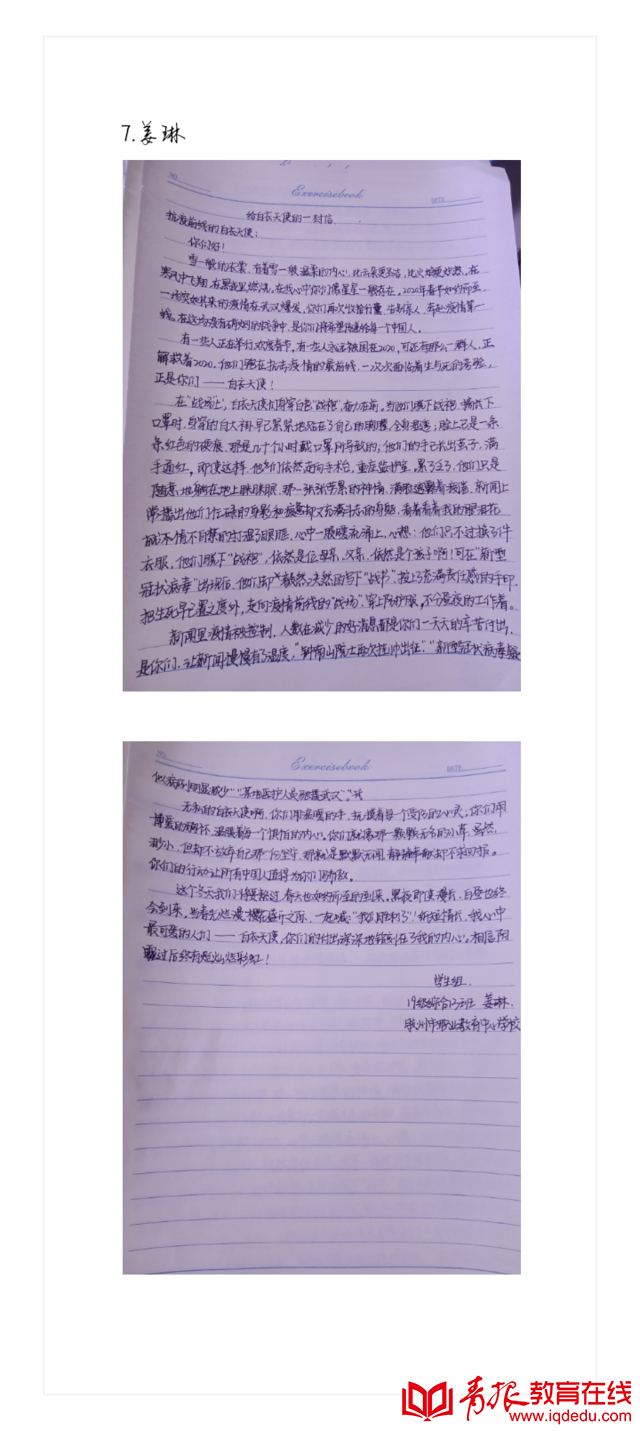 7.姜琳
NO.
Exercisebook
DATE
给白衣天使的一封信
抗疫前线的白衣天使：
你们好！
雪一般的衣裳，有着雪一般温柔的内心，比云朵更圣洁，比火焰更炽热。在
寒风中飞翔，在黑夜里燃烧，在我心中你们像星星一般存在。2020年春节如约而至，
一场突如其来的疫情在武汉爆发，你们再次收拾行囊，告别亲人，奔赴疫情第一
线。在这场没有硝烟的战争中，是你们将希望传递给每一个中国人。
有一些人正在举行欢度春节，有一些人永远被困在2020，可还有那么一群人，正
解救着2020。他们跑在抗击疫情的最前线，一次次面临着生与死的考验，
正是你们——白衣天使！
在“战场”上，白衣天使们身穿白色“战袍”，奋力在前。当他们脱下战袍，摘下
口罩时，身穿的白大褂早已紧紧地贴在了自己的
脸上已是一条
条红色的硬痕，那是几十个小时戴口罩所导致的；他们的手已长出茧子，满
手通红，即使这样，他们依然走向手术台，重症监护室，累了乏了，他们只是
随意地躺在地上眯眯眼，那一张张劳累的神情，满脸透露着疲惫。新闻上
常播出他们忙碌的身影和疲惫却又充满斗志的身躯，看着看着我的眼泪花
情不自禁的打湿了眼眶，心中一股暖流涌上，心想：他们只不过换了件
衣服，他们脱下“战袍”，依然是位母亲、父亲，依然是个孩子啊！可在“新型
冠状病毒”出现后，他们却毅然决然的写下“战书”，按上充满责任感的手印，
把生死早已置之度外，走向疫情前线的“战场”，穿上防护服，不分昼夜的工作着。
新闻里疫情被控制，人数在减少的好消息都是你们一天天的辛苦付出，
是你们，让新闻慢慢有了温度，“钟南山院士再次挂帅出征”“新型冠状病毒疑
NO.
Exercisebook
DATE
似病例明显减少”“某地医护人员驰援武汉”。
无私的白衣天使啊，你们用温暖的手，抚摸着每一个受伤的心灵；你们用
博爱的胸怀，温暖着每一个惧怕的内心。你们就像那一颗颗无名的小草，虽然
渺小，但却不放弃自己那一份坚守，那就是默默无闻，静静奉献却不求回报。
你们的行动让所有中国人值得为你们骄傲。
这个冬天我们将要熬过，春天也如约而至的到来。黑夜即使漫长，白昼也终
会到来。当春光烂漫，樱花盛开之际，一起喊：“我们胜利了！”
我心中
最可爱的人们——白衣天使，你们的付出深深地镌刻在了我的内心。相信阴
霾过后终有灿烂彩虹！
学生组
19级综合13班 姜琳
胶州市职业教育中心学校
青报教育在线
www.iqdedu.com